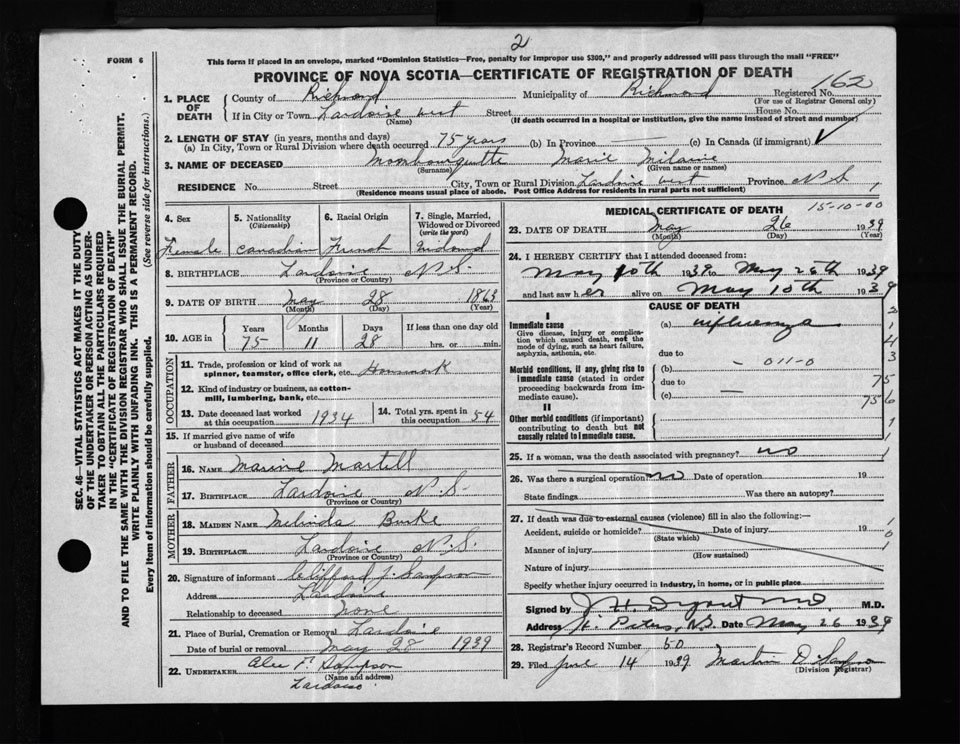 2
FORM 6
This form if placed in an envelope, marked "Dominion Statistics—Free, penalty for improper use $300," and properly addressed will pass through the mail "FREE"
PROVINCE OF NOVA SCOTIA—CERTIFICATE OF REGISTRATION OF DEATH
162
1. PLACE OF DEATH County of Richmond Municipality of Richmond Registered No.
(For use of Registrar General only)
If in City or Town Lardoise West Street House No.
(Name) (If death occurred in a hospital or institution, give the name instead of street and number)
2. LENGTH OF STAY (in years, months and days)
(a) In City, Town or Rural Division where death occurred 75 years (b) In Province (c) In Canada (if immigrant)
3. NAME OF DECEASED Mombourquette Marie
(Surname) (Given name or names)
RESIDENCE No. Street City, Town or Rural Division Lardoise West Province N.S.
(Residence means usual place of abode. Post Office Address for residents in rural parts not sufficient)
4. Sex Female
5. Nationality (Citizenship) Canadian
6. Racial Origin French
7. Single, Married, Widowed or Divorced (write the word) Widowed
8. BIRTHPLACE Lardoise N.S.
(Province or Country)
9. DATE OF BIRTH May 28 1863
(Month) (Day) (Year)
10. AGE in Years Months Days If less than one day old
75 11 28 hrs. or min.
OCCUPATION
11. Trade, profession or kind of work as spinner, teamster, office clerk, etc. Housework
12. Kind of industry or business, as cotton-mill, lumbering, bank, etc.
13. Date deceased last worked at this occupation 1934 14. Total yrs. spent in this occupation 54
15. If married give name of wife or husband of deceased
FATHER
16. NAME Martell
17. BIRTHPLACE Lardoise N.S.
(Province or Country)
MOTHER
18. MAIDEN NAME Melinda Burke
19. BIRTHPLACE Lardoise N.S.
(Province or Country)
20. Signature of informant Clifford J. Sampson
Address Lardoise
Relationship to deceased None
21. Place of Burial, Cremation or Removal Lardoise
Date of burial or removal May 28 1939
22. UNDERTAKER Alex F. Sampson
(Name and address)
Lardoise
MEDICAL CERTIFICATE OF DEATH 15-10-00
23. DATE OF DEATH May 26 1939
(Month) (Day) (Year)
24. I HEREBY CERTIFY that I attended deceased from:
May 10th 1939 to May 26th 1939
and last saw her alive on May 10th 1939
CAUSE OF DEATH
I
Immediate cause
Give disease, injury or complication which caused death, not the mode of dying, such as heart failure, asphyxia, asthenia, etc.
(a) Influenza
due to
Morbid conditions, if any, giving rise to immediate cause (stated in order proceeding backwards from immediate cause).
(b) — 011-0
due to 75
(c) — 75
II
Other morbid conditions (if important) contributing to death but not causally related to immediate cause.
25. If a woman, was the death associated with pregnancy? no
26. Was there a surgical operation? no Date of operation 19
State findings Was there an autopsy?
27. If death was due to external causes (violence) fill in also the following:—
Accident, suicide or homicide? Date of injury 19
(State which)
Manner of injury
(How sustained)
Nature of injury
Specify whether injury occurred in industry, in home, or in public place
Signed by M.D.
Address St. Peters, N.S. Date May 26 1939
28. Registrar's Record Number 50
29. Filed June 14 1939 Martin D. Sampson
(Division Registrar)
SEC. 46—VITAL STATISTICS ACT MAKES IT THE DUTY OF THE UNDERTAKER OR PERSON ACTING AS UNDERTAKER TO OBTAIN ALL THE PARTICULARS REQUIRED IN THE "CERTIFICATE OF REGISTRATION OF DEATH" AND TO FILE THE SAME WITH THE DIVISION REGISTRAR WHO SHALL ISSUE THE BURIAL PERMIT.
WRITE PLAINLY WITH UNFADING INK. THIS IS A PERMANENT RECORD.
Every item of information should be carefully supplied. (See reverse side for instructions.)